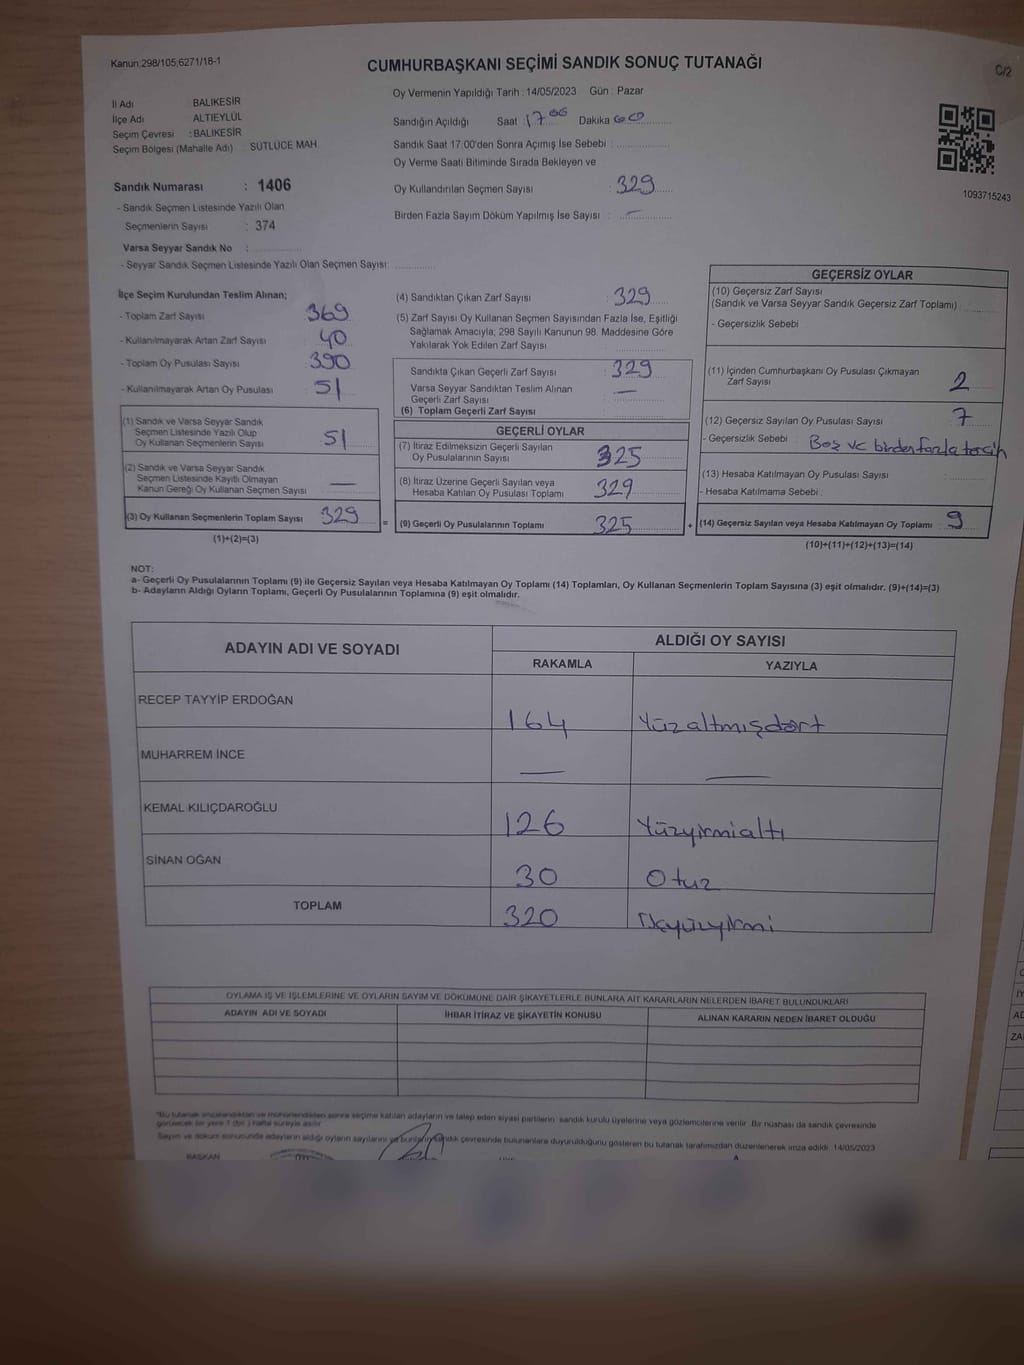 Kanun;298/105;6271/18-1
C/2
CUMHURBAŞKANI SEÇİMİ SANDIK SONUÇ TUTANAĞI
Oy Vermenin Yapıldığı Tarih : 14/05/2023 Gün : Pazar
İl Adı BALIKESİR
İlçe Adı ALTIEYLÜL
Seçim Çevresi : BALIKESİR
Seçim Bölgesi (Mahalle Adı) SÜTLÜCE MAH
Sandık Numarası : 1406
- Sandık Seçmen Listesinde Yazılı Olan
Seçmenlerin Sayısı : 374
Varsa Seyyar Sandık No :
- Seyyar Sandık Seçmen Listesinde Yazılı Olan Seçmen Sayısı:
Sandığın Açıldığı Saat : 17 00 Dakika 00
Sandık Saat 17:00'den Sonra Açımış İse Sebebi :
Oy Verme Saati Bitiminde Sırada Bekleyen ve
Oy Kullandırılan Seçmen Sayısı : 329
Birden Fazla Sayım Döküm Yapılmış İse Sayısı : —
1093715243
İlçe Seçim Kurulundan Teslim Alınan;
- Toplam Zarf Sayısı 369
- Kullanılmayarak Artan Zarf Sayısı 40
- Toplam Oy Pusulası Sayısı 390
- Kullanılmayarak Artan Oy Pusulası 51
(1) Sandık ve Varsa Seyyar Sandık
Seçmen Listesinde Yazılı Olup
Oy Kullanan Seçmenlerin Sayısı 51
(2) Sandık ve Varsa Seyyar Sandık
Seçmen Listesinde Kayıtlı Olmayan
Kanun Gereği Oy Kullanan Seçmen Sayısı —
(3) Oy Kullanan Seçmenlerin Toplam Sayısı 329
(1)+(2)=(3)
=
(4) Sandıktan Çıkan Zarf Sayısı : 329
(5) Zarf Sayısı Oy Kullanan Seçmen Sayısından Fazla İse, Eşitliği
Sağlamak Amacıyla; 298 Sayılı Kanunun 98. Maddesine Göre
Yakılarak Yok Edilen Zarf Sayısı
Sandıkta Çıkan Geçerli Zarf Sayısı : 329
Varsa Seyyar Sandıktan Teslim Alınan
Geçerli Zarf Sayısı : —
(6) Toplam Geçerli Zarf Sayısı
GEÇERLİ OYLAR
(7) İtiraz Edilmeksizin Geçerli Sayılan
Oy Pusulalarının Sayısı 325
(8) İtiraz Üzerine Geçerli Sayılan veya
Hesaba Katılan Oy Pusulası Toplamı 329
(9) Geçerli Oy Pusulalarının Toplamı 325
+
GEÇERSİZ OYLAR
(10) Geçersiz Zarf Sayısı
(Sandık ve Varsa Seyyar Sandık Geçersiz Zarf Toplamı)
- Geçersizlik Sebebi :
(11) İçinden Cumhurbaşkanı Oy Pusulası Çıkmayan
Zarf Sayısı 2
(12) Geçersiz Sayılan Oy Pusulası Sayısı 7
- Geçersizlik Sebebi : Boş ve birden fazla tercih
(13) Hesaba Katılmayan Oy Pusulası Sayısı
- Hesaba Katılmama Sebebi :
(14) Geçersiz Sayılan veya Hesaba Katılmayan Oy Toplamı : 9
(10)+(11)+(12)+(13)=(14)
NOT:
a- Geçerli Oy Pusulalarının Toplamı (9) ile Geçersiz Sayılan veya Hesaba Katılmayan Oy Toplamı (14) Toplamları, Oy Kullanan Seçmenlerin Toplam Sayısına (3) eşit olmalıdır. (9)+(14)=(3)
b- Adayların Aldığı Oyların Toplamı, Geçerli Oy Pusulalarının Toplamına (9) eşit olmalıdır.
ADAYIN ADI VE SOYADI ALDIĞI OY SAYISI
RAKAMLA YAZIYLA
RECEP TAYYİP ERDOĞAN 164 Yüzaltmışdört
MUHARREM İNCE — —
KEMAL KILIÇDAROĞLU 126 Yüzyirmialtı
SİNAN OĞAN 30 Otuz
TOPLAM 320
OYLAMA İŞ VE İŞLEMLERİNE VE OYLARIN SAYIM VE DÖKÜMÜNE DAİR ŞİKAYETLERLE BUNLARA AİT KARARLARIN NELERDEN İBARET BULUNDUKLARI
ADAYIN ADI VE SOYADI İHBAR İTİRAZ VE ŞİKAYETİN KONUSU ALINAN KARARIN NEDEN İBARET OLDUĞU
*Bu tutanak imzalandıktan ve mühürlendikten sonra seçime katılan adayların ve talep eden siyasi partilerin sandık kurulu üyelerine veya gözlemcilerine verilir. Bir nüshası da sandık çevresinde
görülecek bir yere 1 (bir) hafta süreyle asılır.
Sayım ve döküm sonucunda adayların aldığı oyların sayılarını ve bunların sandık çevresinde bulunanlara duyurulduğunu gösteren bu tutanak tarafımızdan düzenlenerek imza edildi. 14/05/2023
BAŞKAN